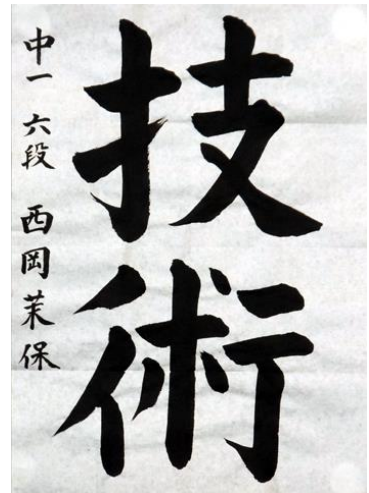 技術
中一 六段 西岡茉保